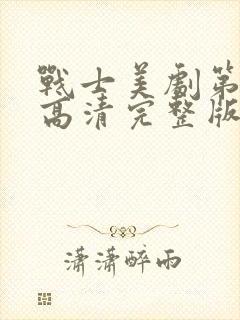 戰士美劇第
高清完整版
瀟瀟醉雨